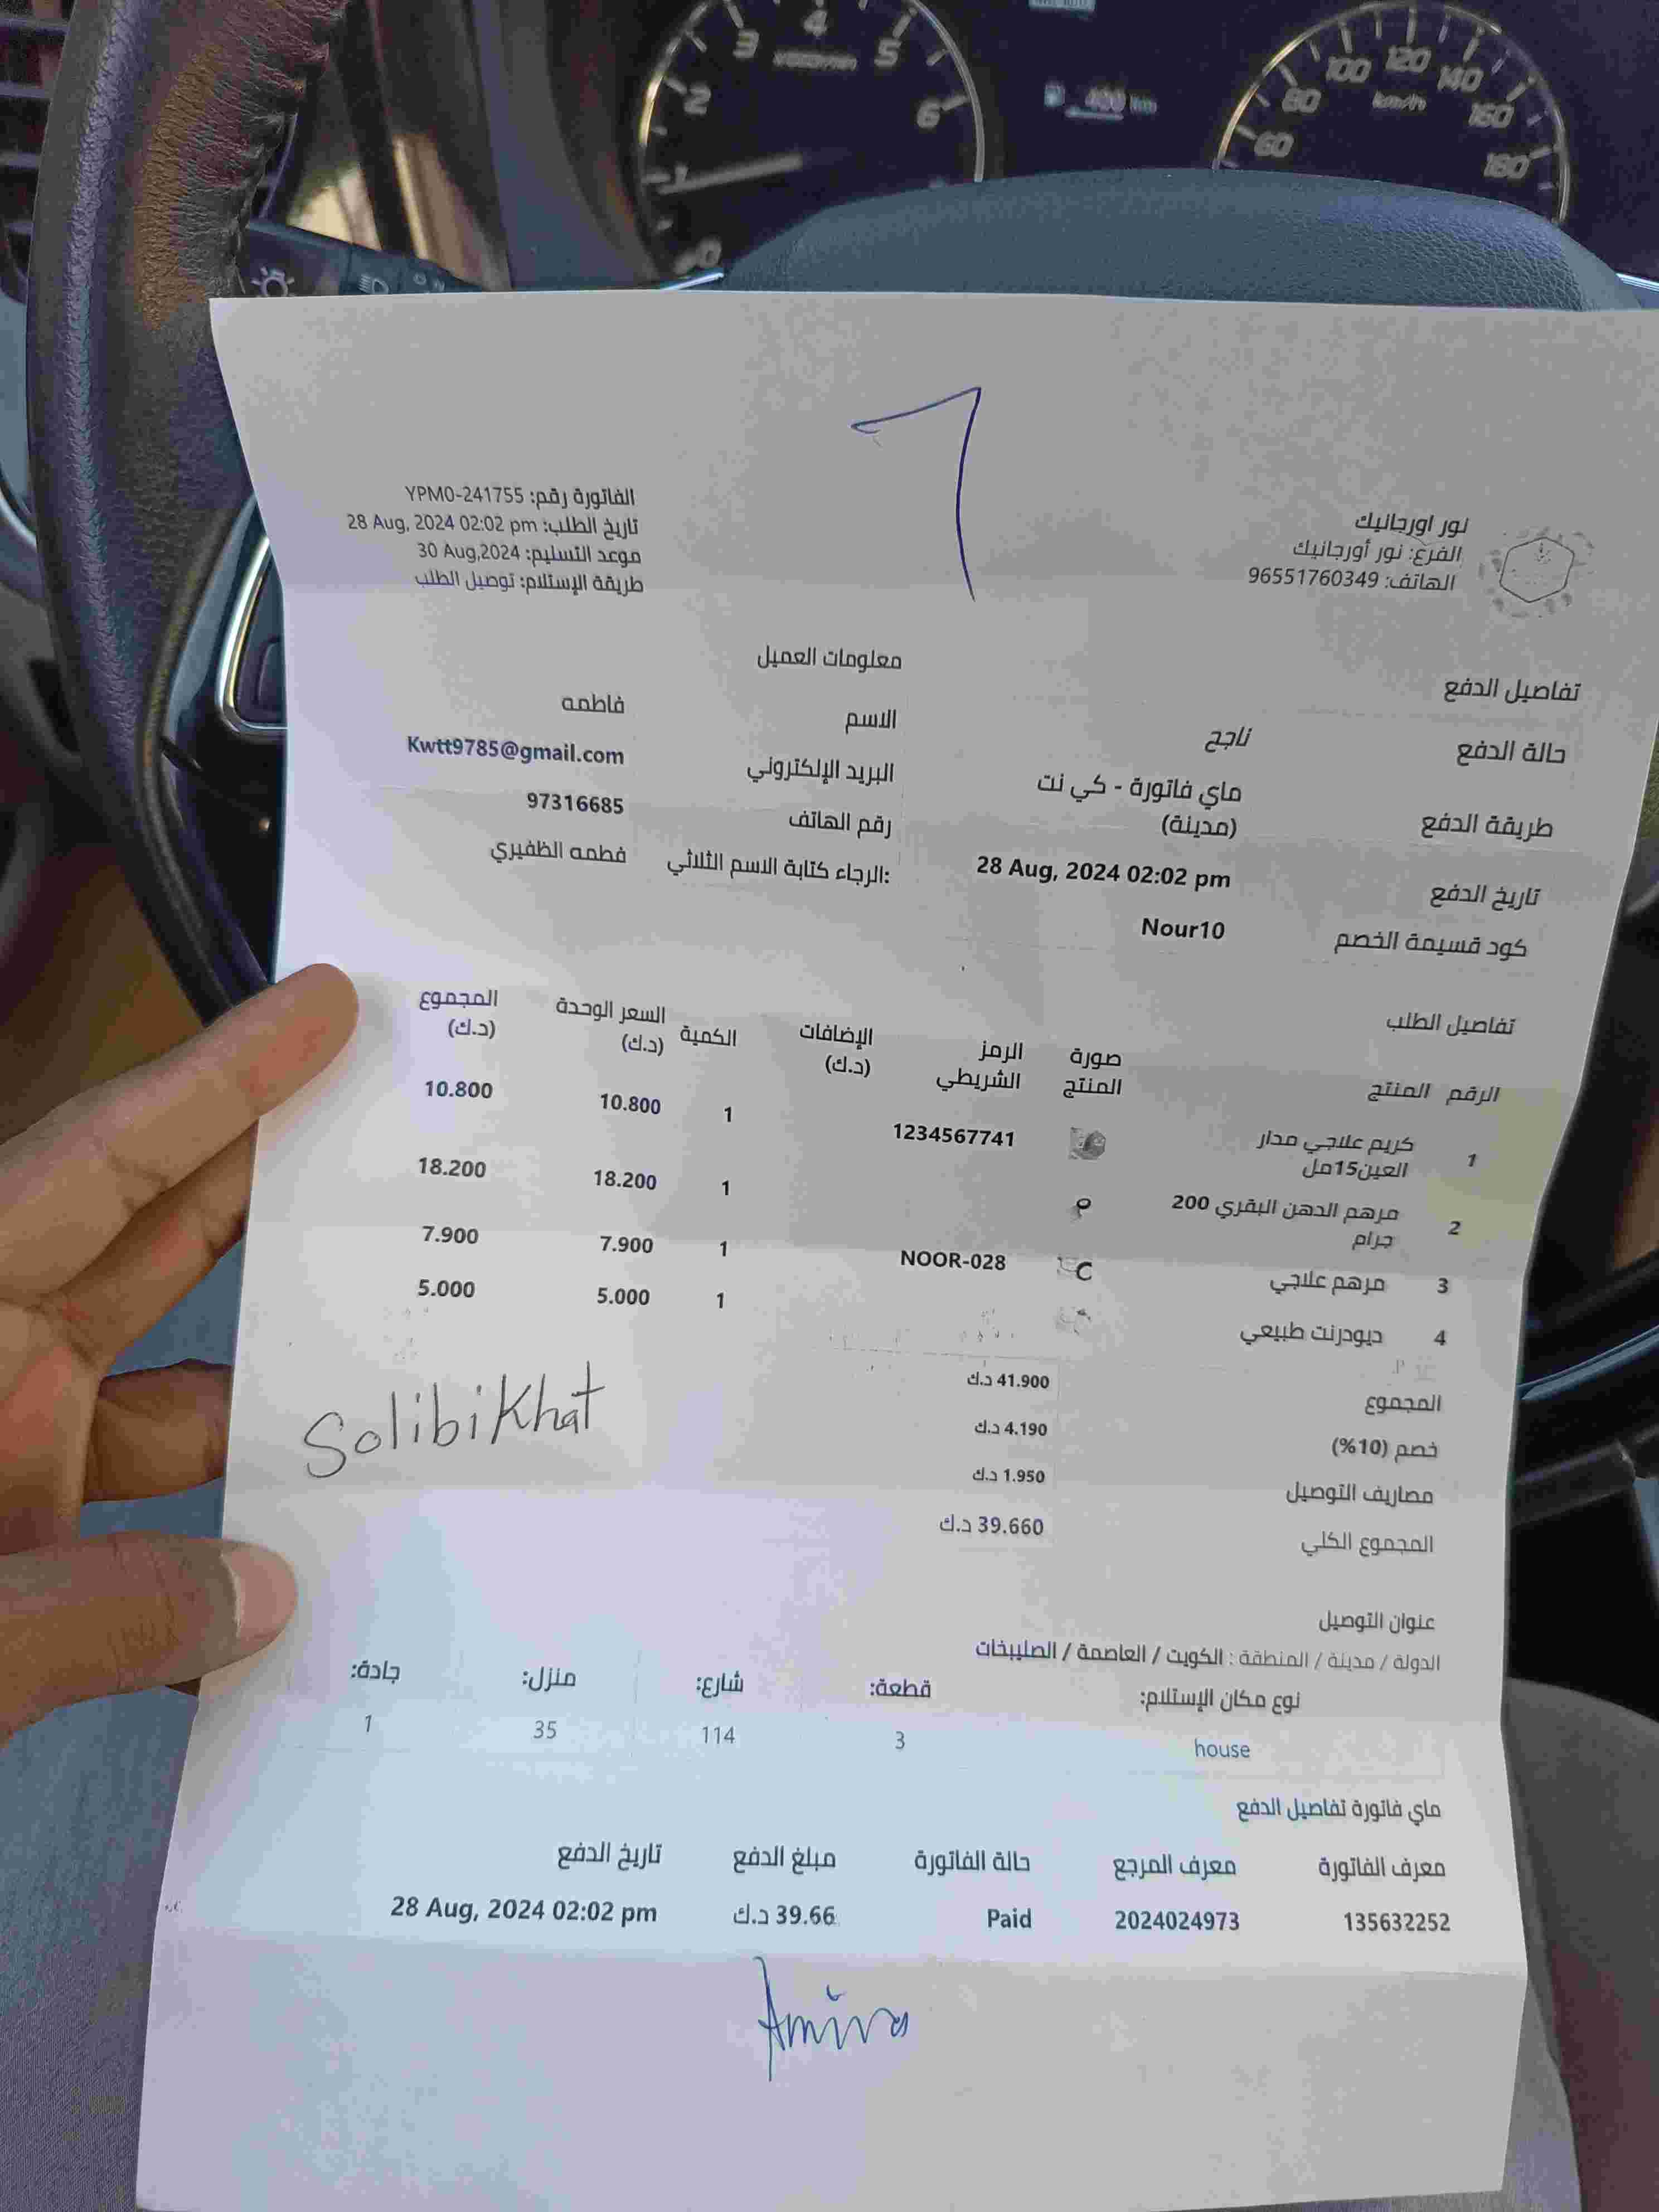 3
4
5
2
x1000r/min
6
1
0
400 km
60
80
100
120
140
160
180
km/h
1
نور اورجانيك
الفرع: نور أورجانيك
الهاتف: 96551760349
الفاتورة رقم: YPM0-241755
تاريخ الطلب: 28 Aug, 2024 02:02 pm
موعد التسليم: 30 Aug,2024
طريقة الإستلام: توصيل الطلب
تفاصيل الدفع
حالة الدفع ناجح
طريقة الدفع ماي فاتورة - كي نت
(مدينة)
تاريخ الدفع 28 Aug, 2024 02:02 pm
كود قسيمة الخصم Nour10
معلومات العميل
الاسم فاطمه
البريد الإلكتروني Kwtt9785@gmail.com
رقم الهاتف 97316685
الرجاء كتابة الاسم الثلاثي: فطمه الظفيري
تفاصيل الطلب
الرقم المنتج صورة المنتج الرمز الشريطي الإضافات (د.ك) الكمية السعر الوحدة (د.ك) المجموع (د.ك)
1 كريم علاجي مدار 1234567741 1 10.800 10.800
العين15مل
2 مرهم الدهن البقري 200 1 18.200 18.200
جرام
3 مرهم علاجي NOOR-028 1 7.900 7.900
4 ديودرنت طبيعي 1 5.000 5.000
المجموع 41.900 د.ك
خصم (10%) 4.190 د.ك
مصاريف التوصيل 1.950 د.ك
المجموع الكلي 39.660 د.ك
SolibiKhat
عنوان التوصيل
الدولة / مدينة / المنطقة : الكويت / العاصمة / الصليبخات
نوع مكان الإستلام: قطعة: شارع: منزل: جادة:
house 3 114 35 1
ماي فاتورة تفاصيل الدفع
معرف الفاتورة معرف المرجع حالة الفاتورة مبلغ الدفع تاريخ الدفع
135632252 2024024973 Paid 39.66 د.ك 28 Aug, 2024 02:02 pm
Amira